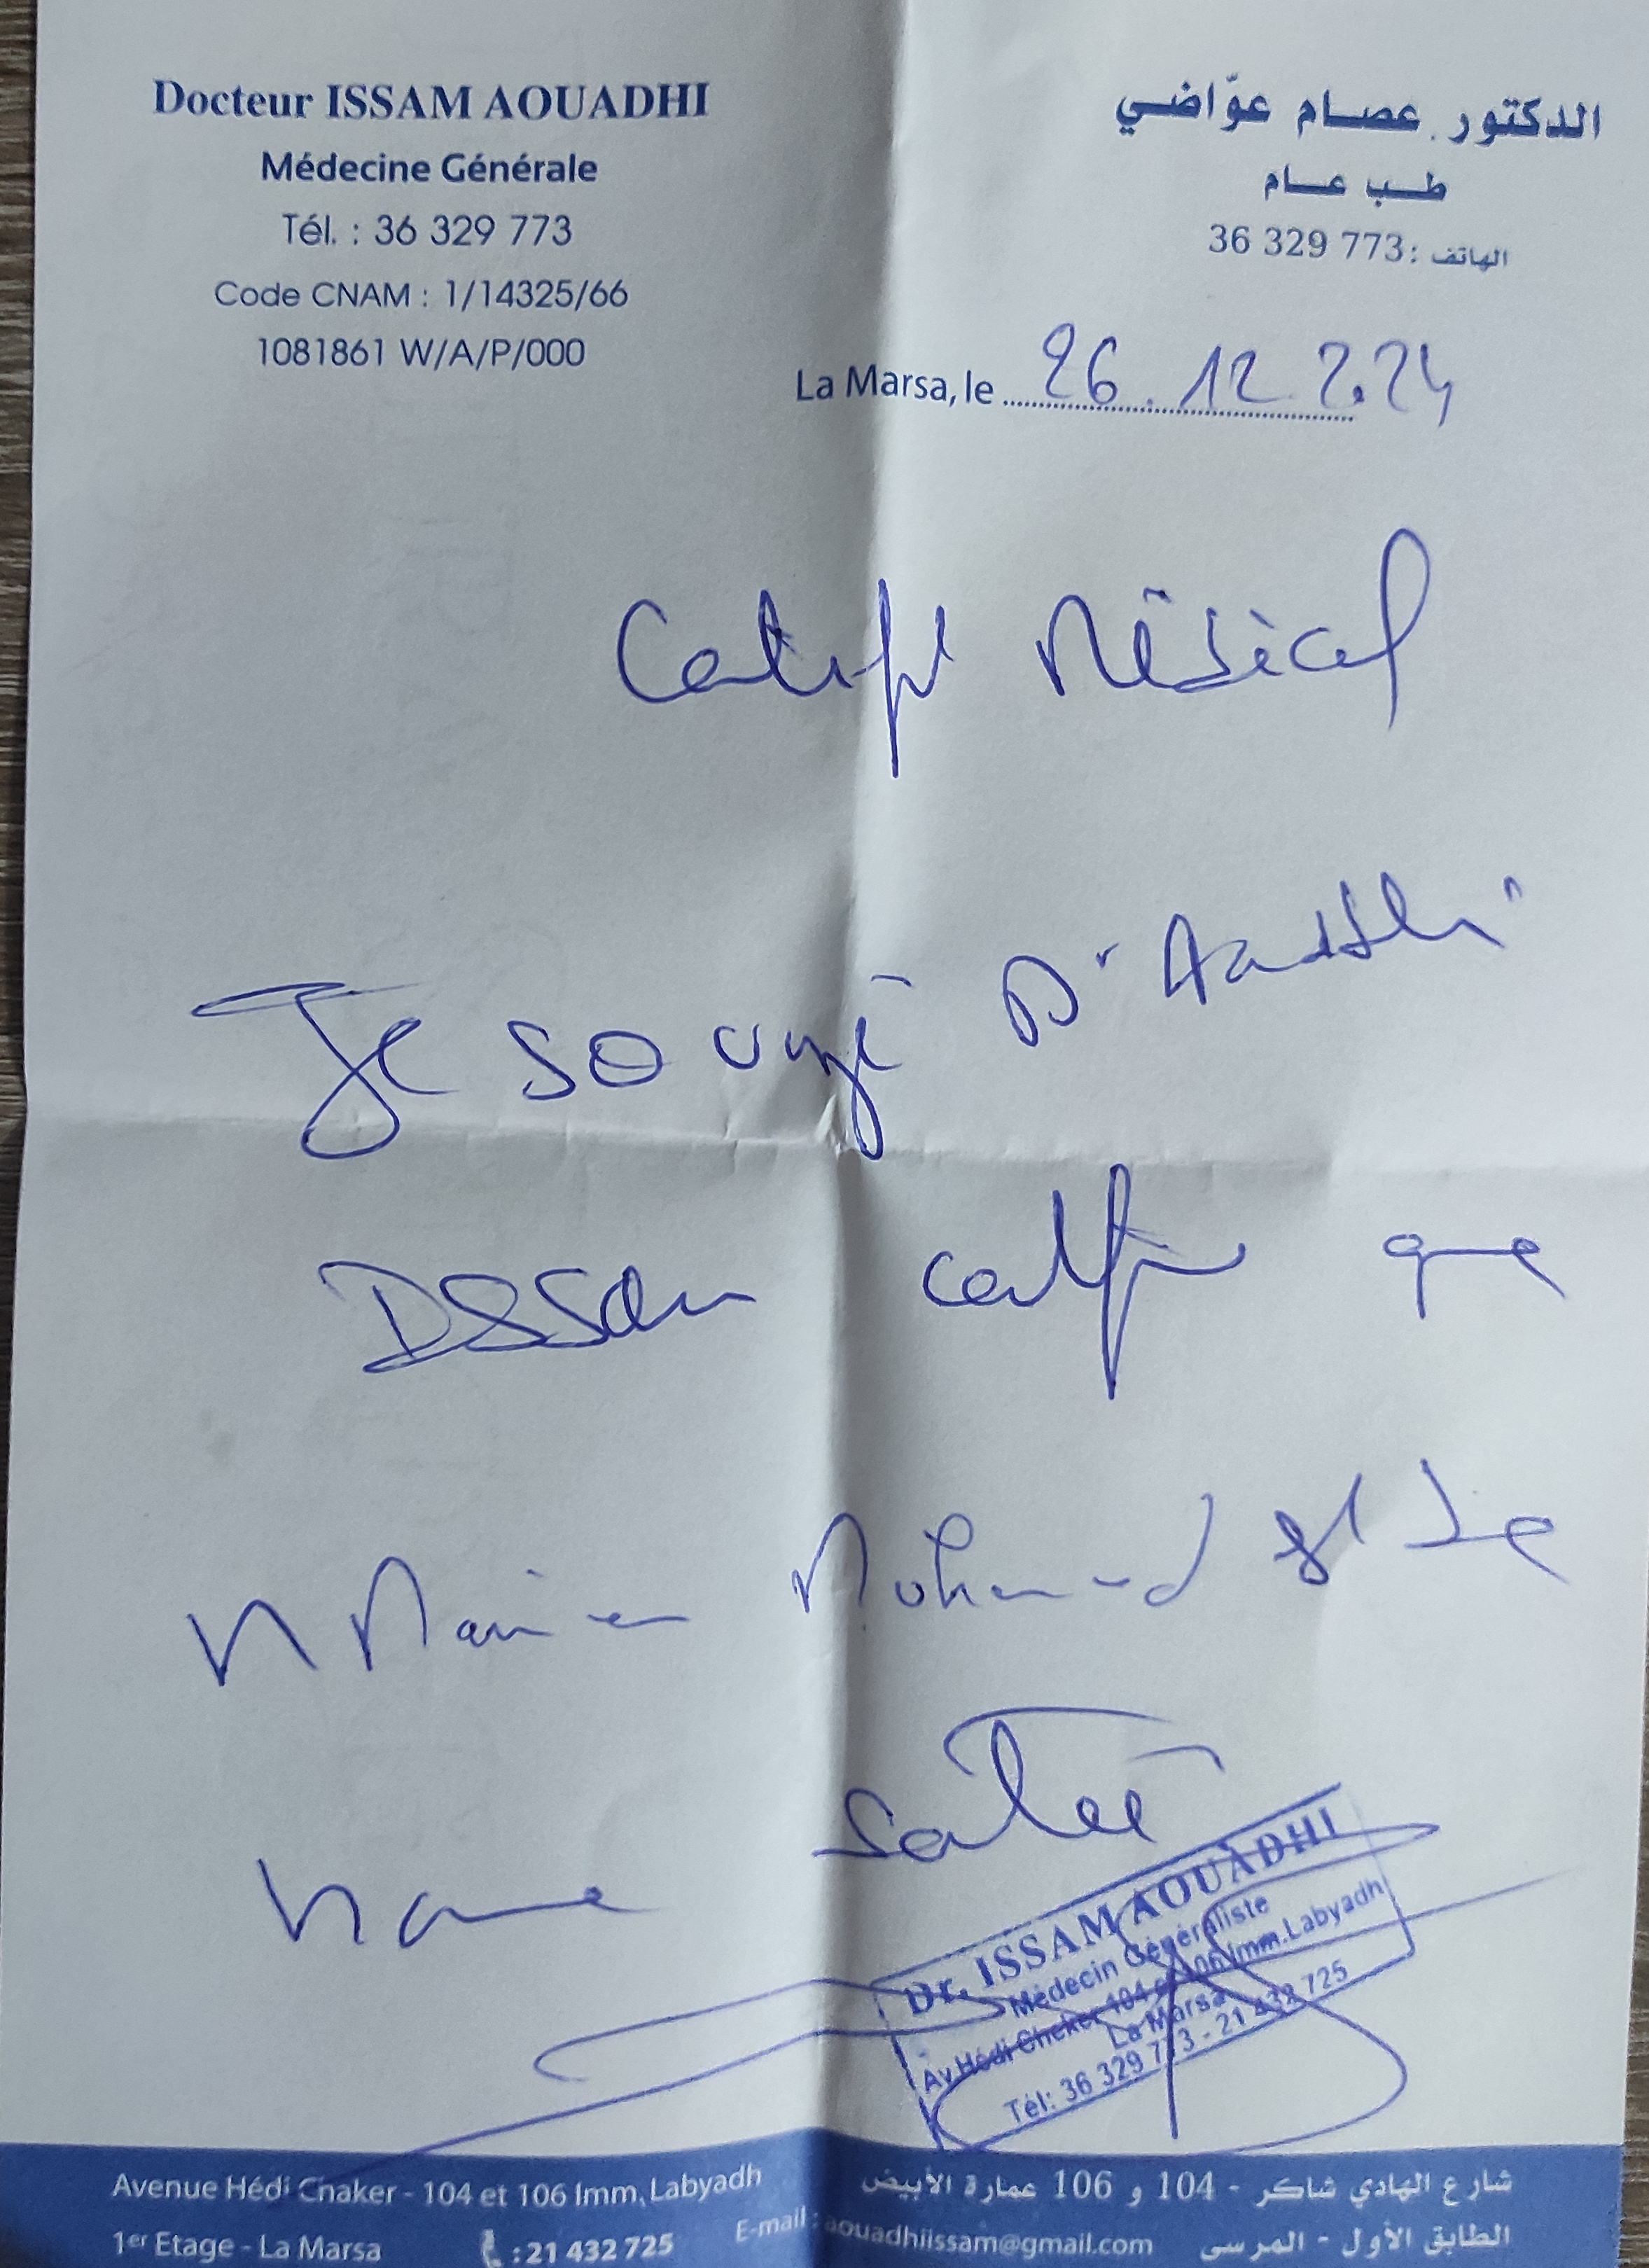 Docteur ISSAM AOUADHI
Médecine Générale
Tél. : 36 329 773
Code CNAM : 1/14325/66
1081861 W/A/P/000
الدكتور عصام عوّاضي
طب عام
الهاتف : 36 329 773
La Marsa, le 26.12.2024
Certificat Médical
Je soussigné Dr Aouadhi
Issam certifie que
Mohamed
Dr. ISSAM AOUADHI
Médecin Généraliste
Av Hédi Cheker 104 et 106 Imm. Labyadh
La Marsa
Tél: 36 329 773 - 21 432 725
Avenue Hédi Chaker - 104 et 106 Imm. Labyadh
1er Etage - La Marsa : 21 432 725
E-mail : aouadhiissam@gmail.com
شارع الهادي شاكر - 104 و 106 عمارة الأبيض
الطابق الأول - المرسى